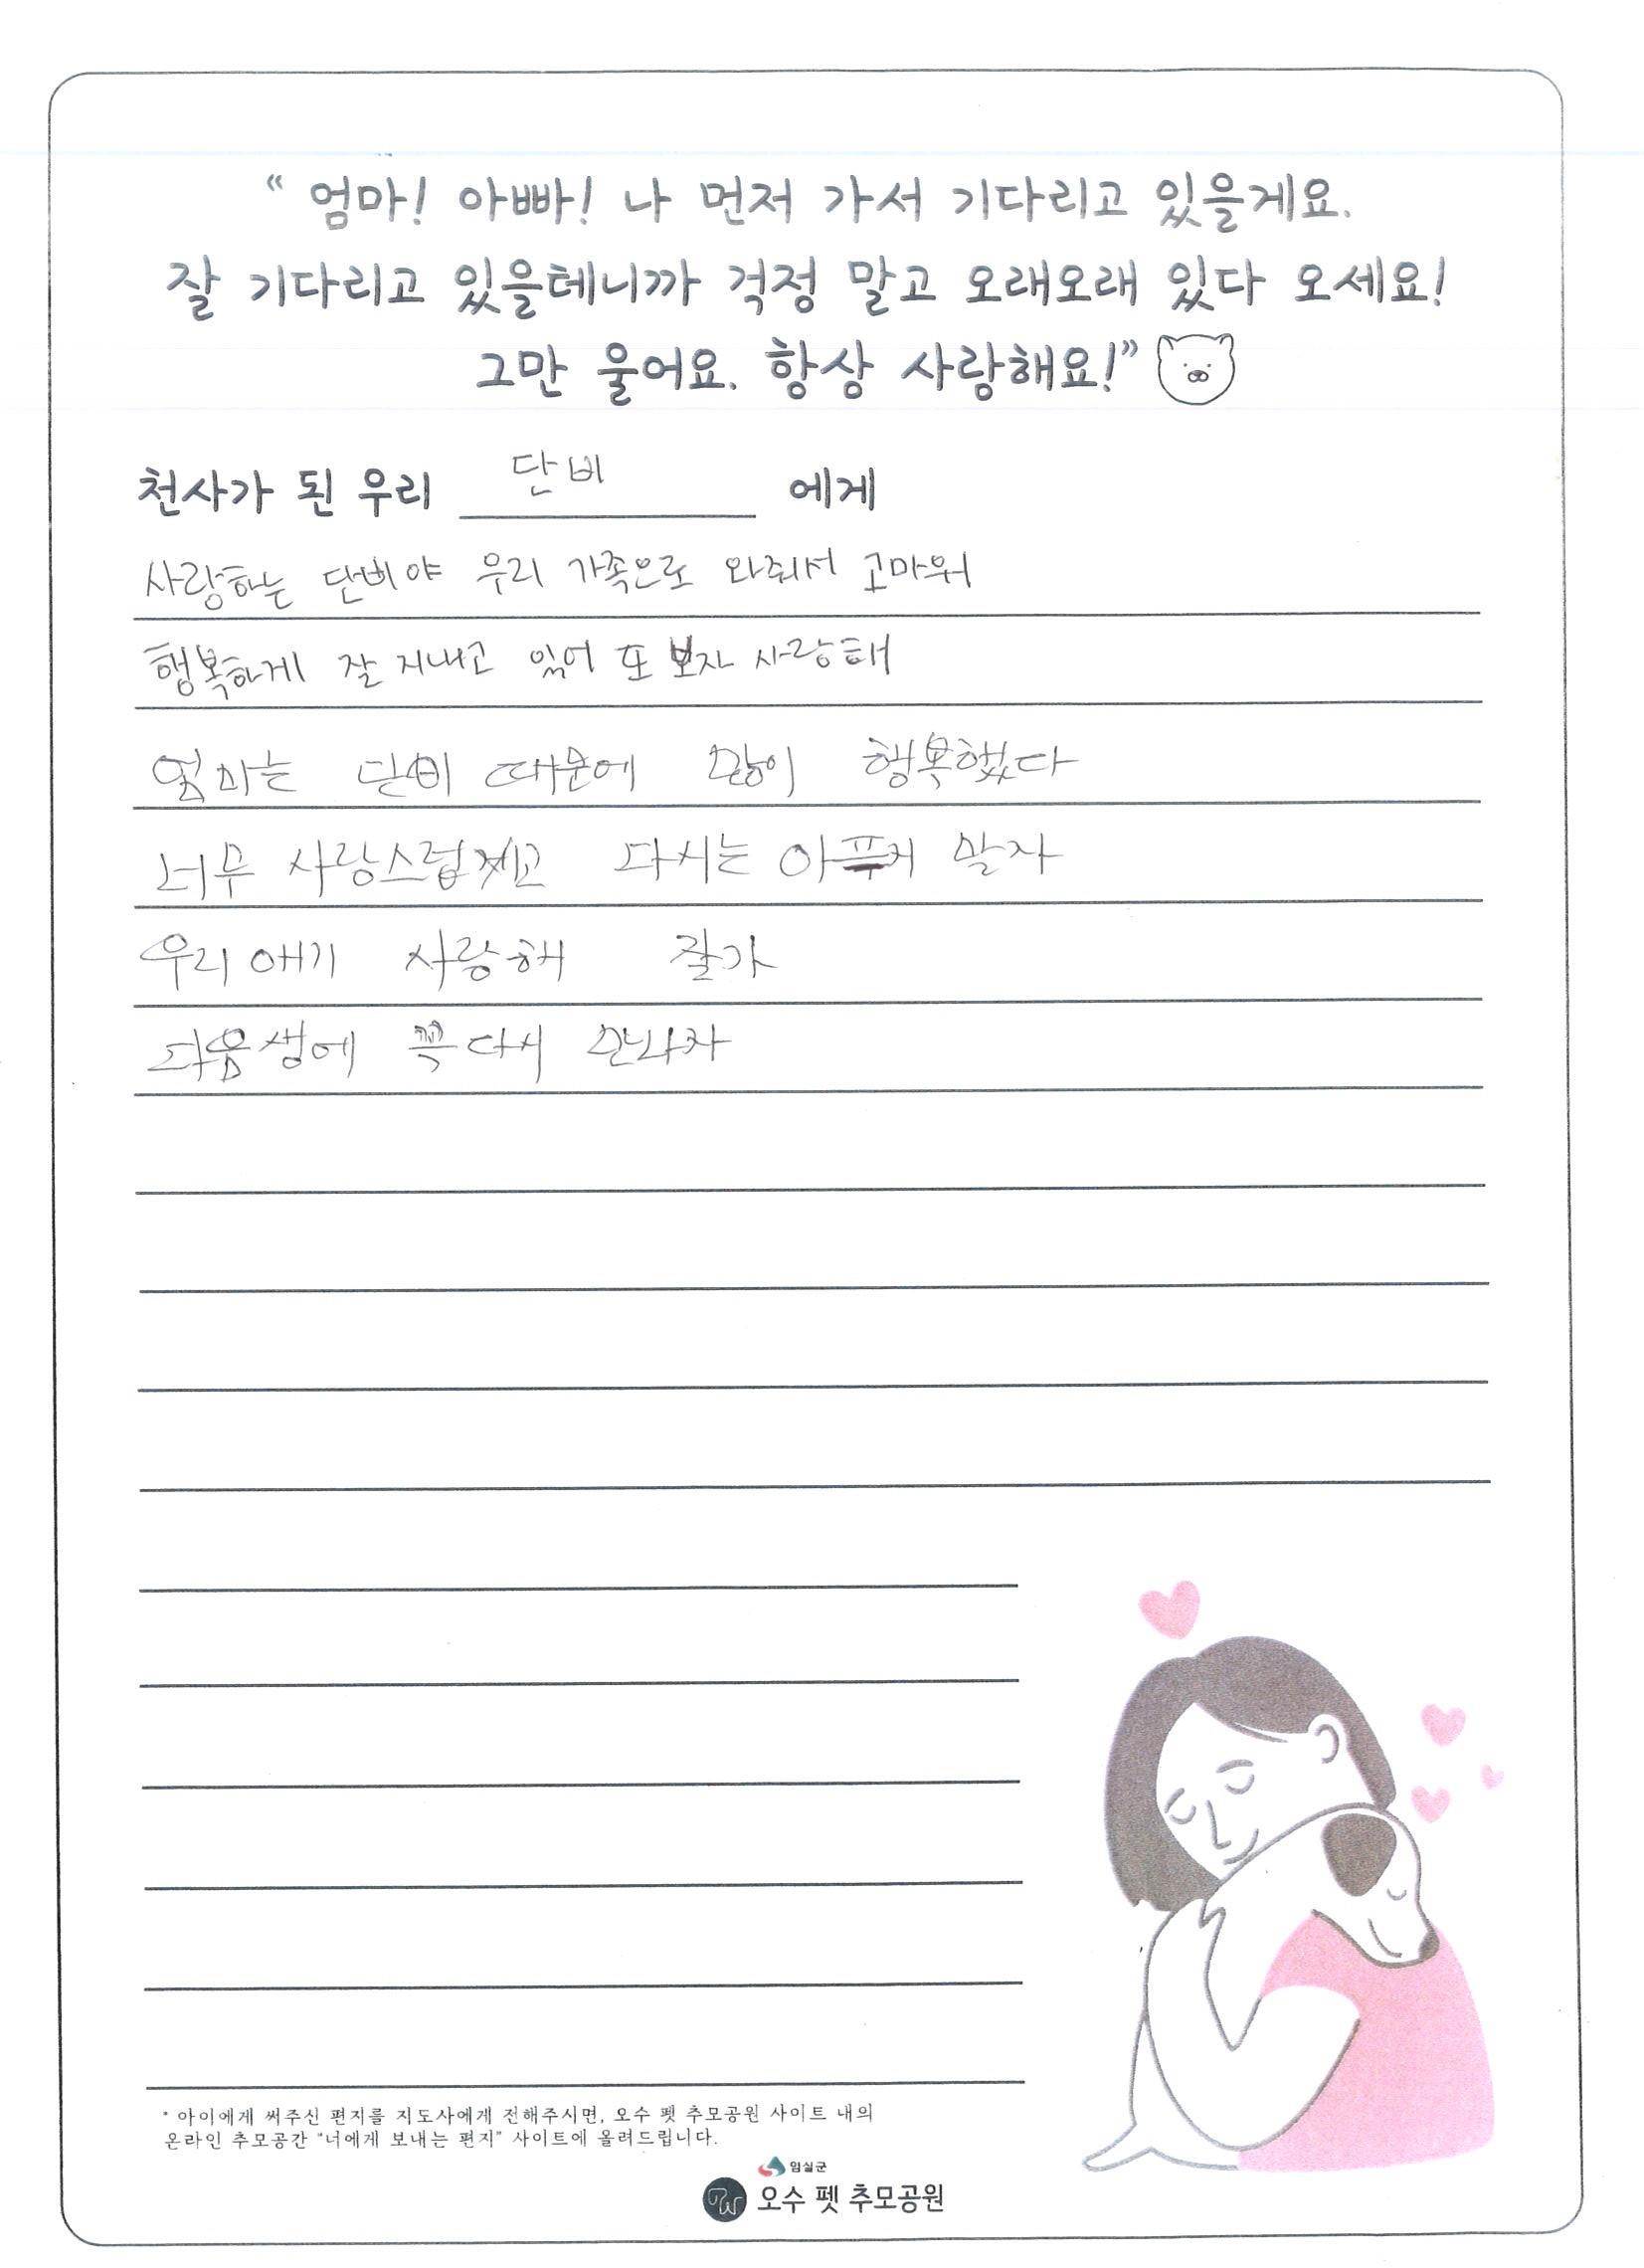 “ 엄마! 아빠! 나 먼저 가서 기다리고 있을게요.
잘 기다리고 있을테니까 걱정 말고 오래오래 있다 오세요!
그만 울어요. 항상 사랑해요!”
천사가 된 우리 단비 에게
사랑하는 단비야 우리 가족으로 와줘서 고마워
행복하게 잘 지내고 있어 또 보자 사랑해
엄마는 단비 때문에 많이 행복했다
너무 사랑스럽고 다시는 아프지 말자
우리 애기 사랑해 잘가
다음생에 꼭 다시 만나자
* 아이에게 써주신 편지를 지도사에게 전해주시면, 오수 펫 추모공원 사이트 내의
온라인 추모공간 "너에게 보내는 편지" 사이트에 올려드립니다.
임실군
오수 펫 추모공원